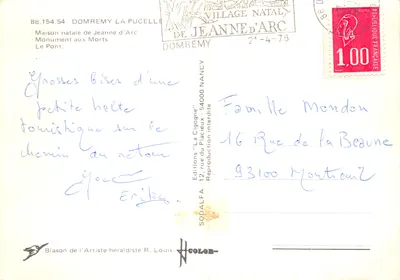 88.154.54 DOMREMY LA PUCELLE
Maison natale de Jeanne d'Arc
Monument aux Morts
Le Pont.
VILLAGE NATAL
DE JEANNE D'ARC
DOMREMY
21-4-79
1,00
FRANÇAISE
Grosses bises d'une
petite halte
touristique sur le
chemin du retour
Famille Mondon
16 Rue de la Beaune
93100 Montreuil
SODALFA Editions "La Cigogne"
12, rue du Placieux - 54000 NANCY
Reproduction interdite
Blason de l'Artiste héraldiste R. Louis
COLOR